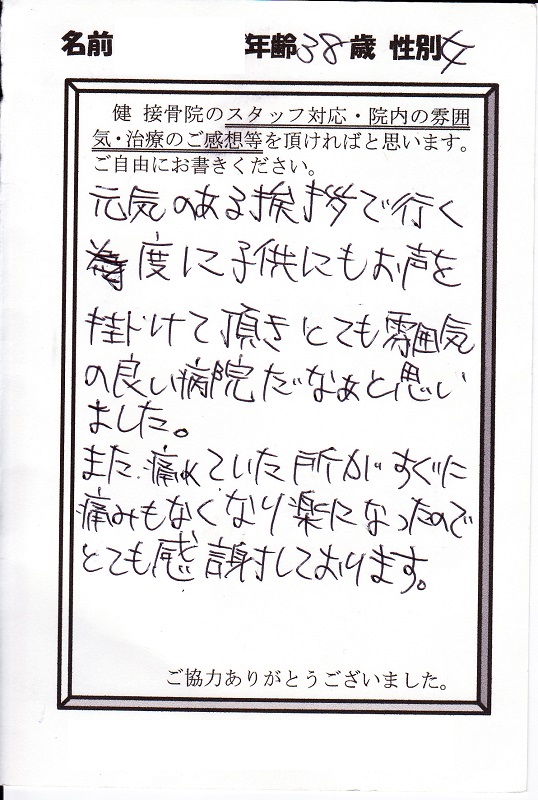 名前 年齢38歳 性別女
健 接骨院のスタッフ対応・院内の雰囲
気・治療のご感想等を頂ければと思います。
ご自由にお書きください。
元気のある挨拶で行く
度に子供にもお声を
掛けて頂きとても雰囲気
の良い病院だなぁと思い
ました。
また、痛めていた所がすぐに
痛みもなくなり楽になったので
とても感謝しております。
ご協力ありがとうございました。